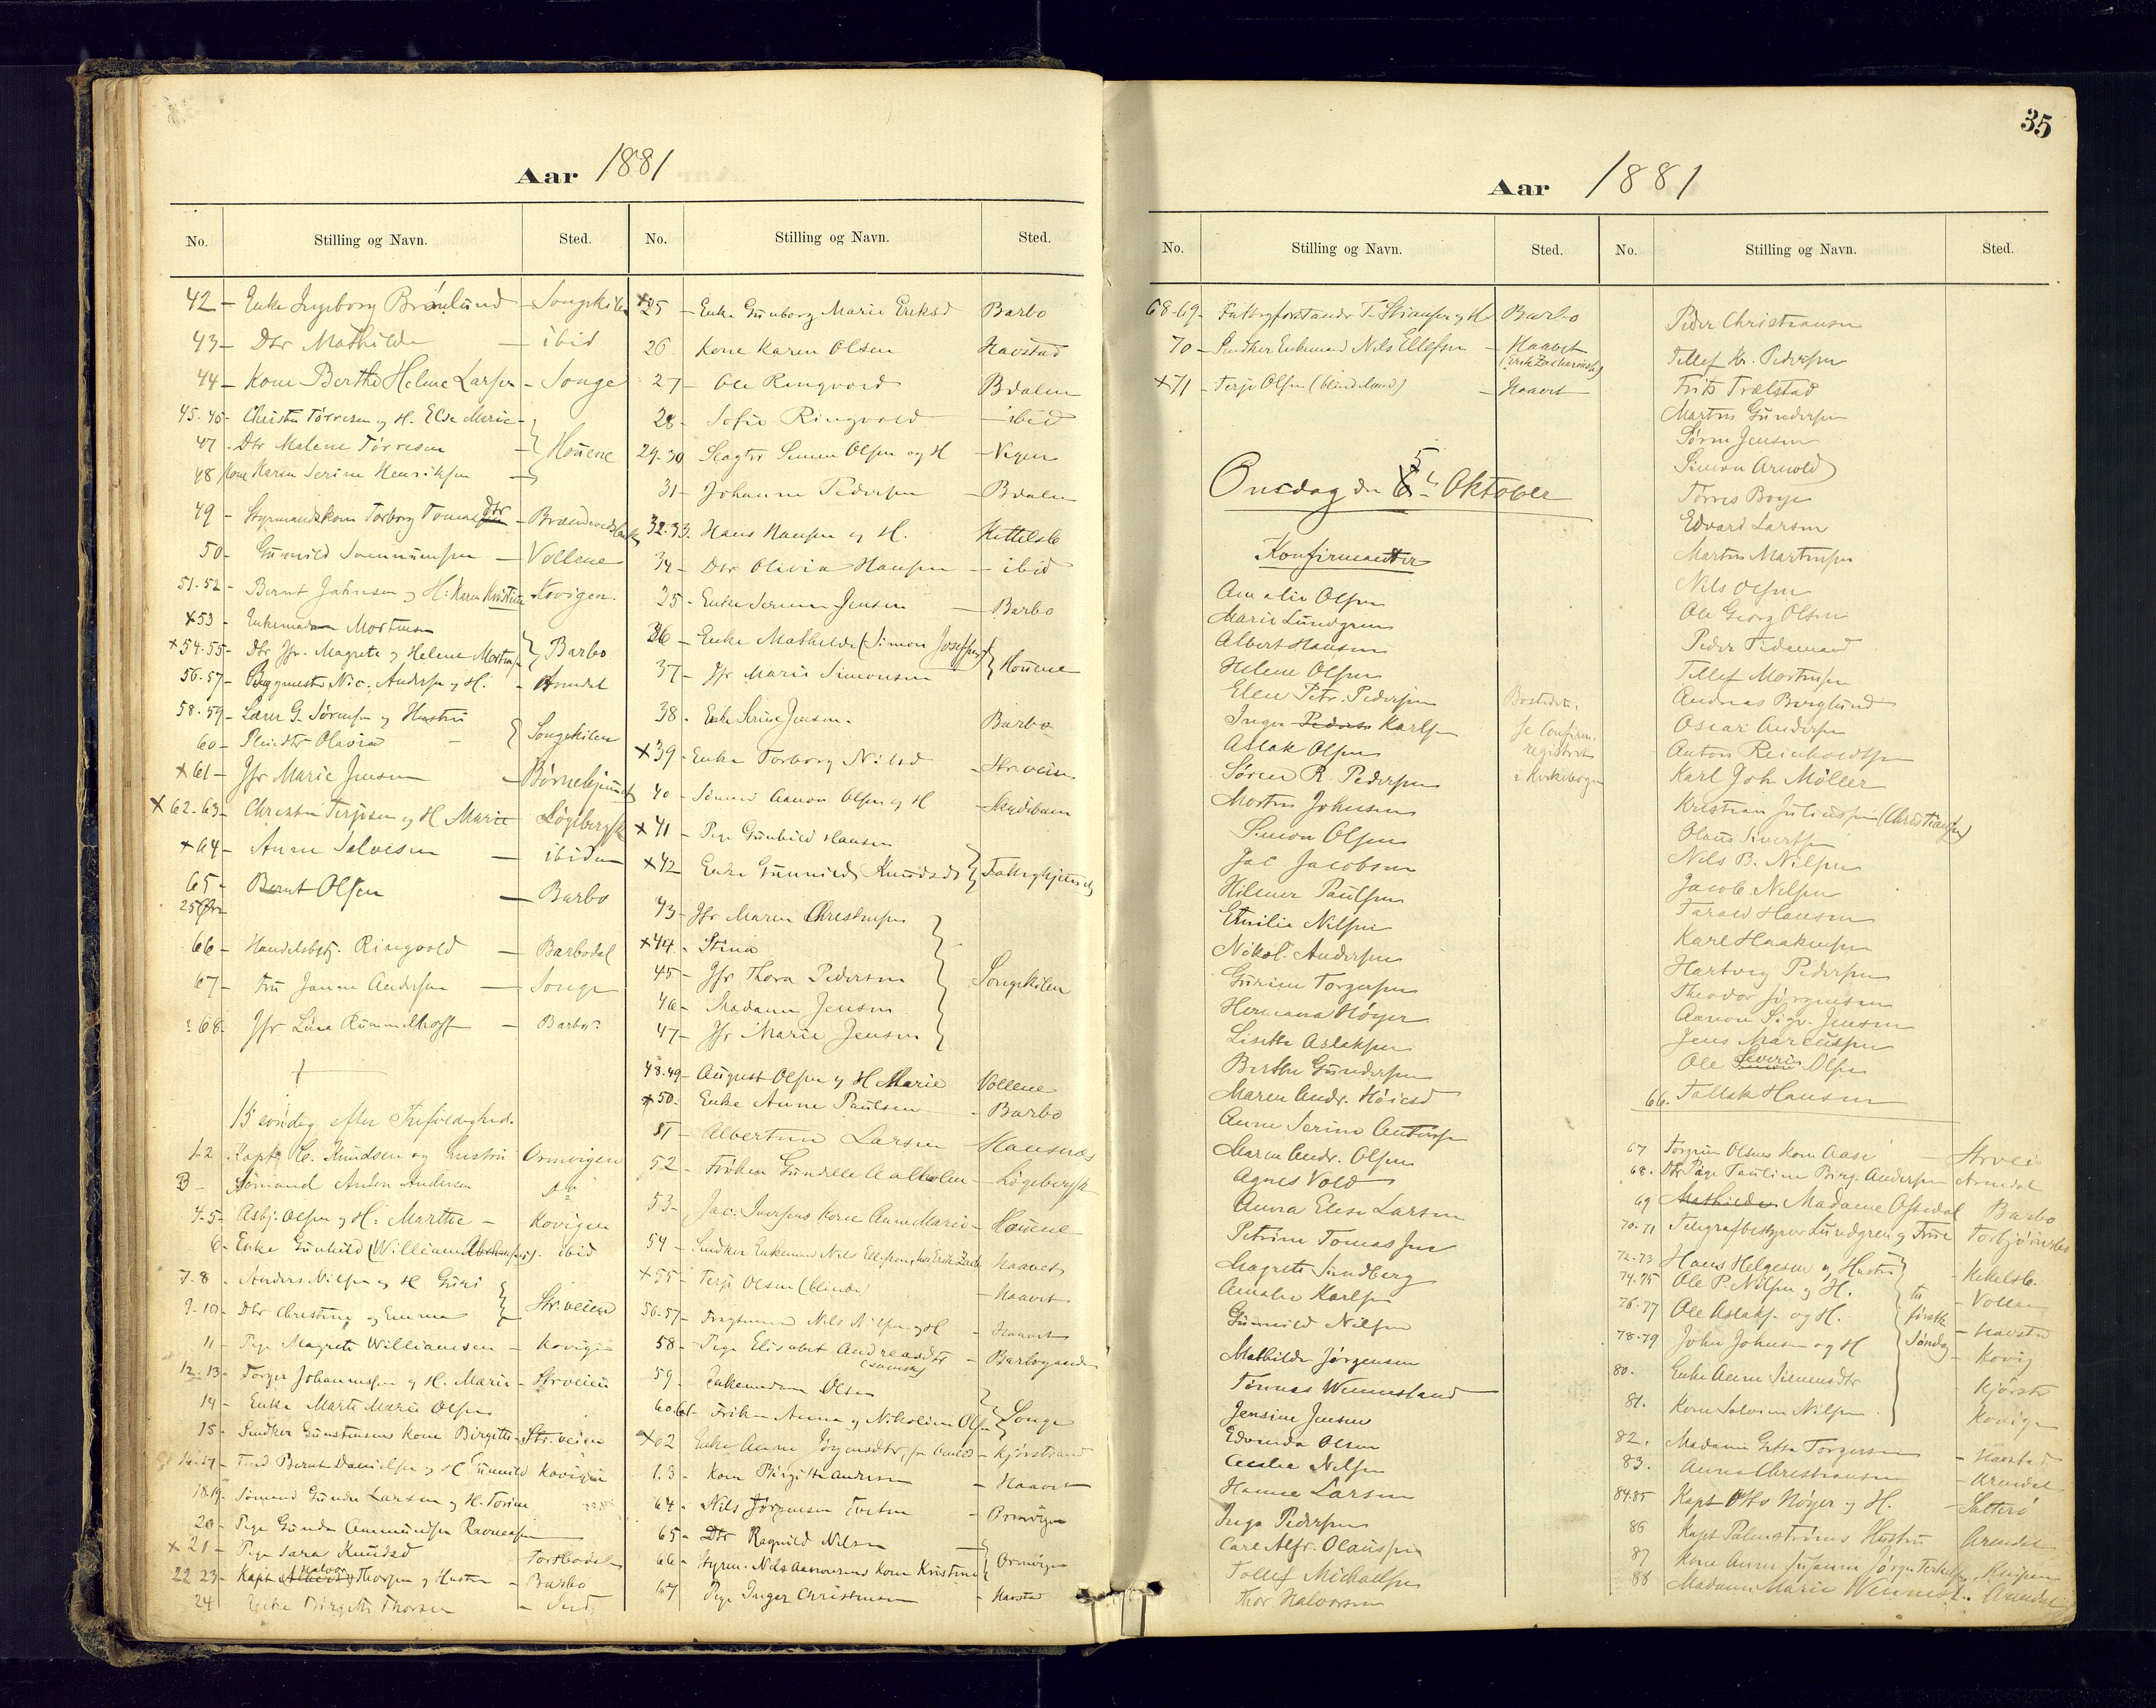 Aar 1881
No. Stilling og Navn. Sted. No. Stilling og Navn. Sted.
42 - Enke Ingeborg Brönlund - Songekilen
43 - Dtr Mathilde - ibid
44 - Kone Berthe Helene Larsen - Songe
45-46 - Christen Törresen og H. Else Marie -
47 - Dtr Malene Törresen - Houene
48 Kone Karen Serine Henriksen -
49 - Styrmandskone Torborg Tomasdtr -
50 - Gunnild - Vollene
51-52 - Bernt Jahnsen og H: Karen Kristine - Kovigen.
x53 - Enkemadam Mortensen
x54-55 - Dtr Jfr. Magrete og Helene Mortensen Barbo
56-57 - Bygmester Nic. Andersen og H. - Arendal
58-59 - Lærer G. Sörensen og Hustru
60 - Pleiedtr Olavia - Songekilen
x61 - Jfr Marie Jensen -
x62-63 - Christen Terjesen og H Marie Lögebergsk
x64 - Anne Salvesen - ibidem
65 - Bernt Olsen - Barbo
25 Öre
66 - Handelsbstj. Ringvold - Barbodal
67 - Fru Janne Andersen - Songe
68 - Jfr Lina Rummelhoff - Barbo
15 söndag efter Trefoldighed.
1-2 Kapt. C. Knudsen og Hustru Ormvigen
3 - Sömand Anton Andersen do
4-5 - Asbj. Olsen og H: Marthe - Kovigen
6 - Enke Gunhild (William Abrahamsen) - ibid
7-8 - Anders Nilsen og H Guri
9-10 - Dtr Christine og Emma - Str.veien
11 - Pige Magrete Williamsen - Kovigen
12-13 - Torger Johannessen og H. Marie - Strveien
14 - Enke Marte Marie Olsen
15 - Snedker Gunstensens Kone Birgitte - Str.veien
16-17 - Bernt Danielsen og H Gunnild Kovigen
18-19 - Sömand Gunder Larsen og H. Torine
20 - Pige Gunda Ammundsen
x21 - Pige Sara Knudsd
22-23 - Kapt Halvor Thorsen og Hustru - Barbo
24 Enke Birgitte Thorsen - ibid
x25 - Enke Gunborg Marie Eriksd Barbo
26 Kone Karen Olsen Havstad
27 - Ole Ringvold Bdalen
28 - Sofie Ringvold - ibid
29-30 Slagter Simen Olsen og H - Vigen
31 - Johanne Pedersen - Bdalen
32-33. Hans Hansen og H. Kittelsb
34 - Dtr Olivia Hansen - ibid
35 - Enke Serine Jensen - Barbo
36 - Enke Mathilde (Simon Josefsen)
37 - Jfr Marie Simonsen Houene
38 - Enk Serine Jensen - Barbo
x39 - Enke Torborg Nilsd - Str.veien
40 - Sömand Aanon Olsen og H -
x41 - Pige Gunhild Hansen
x42 Enke Gunnild Knudsd Fattighjemmet
43 - Jfr Maren Christensen
x44 - Stina
45 - Jfr Thora Pedersen Songekilen
46 - Madam Jensen
47 - Jfr Marie Jensen
48-49 - August Olsen og H Marie Vollene
x50 - Enke Anne Paulsen - Barbo
51 - Albertine Larsen Hansnæs
52 - Fröken Gundelle Aalholm - Lögebergsk
53 - Jac. Iversens Kone Anne Marie - Houene
54 - Snedker Enkemand Nils Ellefsen, hos Erik Zach Haavet
x55 - Terje Olsen (blinde) - Haavet
56-57 - Nils Nilsen og H - Haavet
58 - Pige Elisabet Andreasdtr - Barbogaarden
59 - Enkemadam Olsen
60-61 - Frökn Anna og Nikoline Olsen Songe
x62 Enke Anne Jörgensdtr, - Kjörstrand
63 - Kone Birgitte Andersen - Haavet
64 - Nils Jörgensen Tveten - Ormvigen
65 - Dtr Ragnild Nilsen -
66 - Styrm. Nils Aanonsens Kone Kristine Ormvigen
67 Pige Inger Christensen - Havstad
35
Aar 1881
No. Stilling og Navn. Sted. No. Stilling og Navn. Sted.
68-69 - Fattigforstander T. Stiansen og H Barbo
70 - Snedker Enkemand Nils Ellefsen - Haavet
(Erik Zachariasen)
x71 - Terje Olsen (blind Mand) - Haavet
Onsdag den 5te Oktober
Konfirmanter
Amalie Olsen
Marie Lundgren
Albert Hansen
Helene Olsen
Elen Petr. Pedersen
Inga Karlsen
Aslak Olsen
Sören R. Pedersen
Morten Johnsen
Simon Olsen
Jac Jacobsen
Hilmer Paulsen
Emilie Nilsen
Nikol. Andersen
Gurine Torgersen
Hermana Höyer
Lisette Aslaksen
Berthe Gundersen
Maren Andr. Höiesd
Anne Serine Andersen
Maren Andr. Olsen
Agnes Vold
Anna Elese Larsen
Petrine Tomas
Magrete Sundberg
Amalie Karlsen
Gunnild Nilsen
Mathilde Jörgensen
Tönnes Wennesland
Jensine Jensen
Edvarda Olsen
Cecilie Nilsen
Hanne Larsen
Inga Pedersen
Carl Alfr. Olausen
Tollef Michaelsen
Thor Halvorsen
Bostedet:
se Confirm.
registret
i Kirkebogen
Peder Christiansen
Tellef Kr. Pedersen
Frits Trælstad
Martin Gundersen
Sörn Jensen
Simon Arnold
Torres Boye
Edvard Larsen
Martin Martinsen
Nils Olsen
Ole Georg Olsen
Peder Tidemand
Tellef Mortensen
Andreas Berglund
Oscar Andersen
Anton Reinholdtsen
Karl Joh. Möller
Kristian Juliussen (Christiansen)
Olaus Sivertsen
Nils B. Nilsen
Jacob Nilsen
Tarald Hansen
Karl Haakensen
Hartvig Pedersen
Theodor Jörgensen
Aanon Sigv. Jensen
Jens Marcussen
Ole Severin Olsen
66. Tallak Hansen
67 Torgrim Olsens Kone Aase - Strvei
68 - Dtr Pige Pauline Birg. Andersen Arendal
69 Madame Ofstedal Barbo
70-71 Telegrafbestyrer Lundgren og Frue Torbjörnsbo
72-73 Hans Helgesen og Hustru - Kikelsb.
74-75 Ole P. Nilsen og H. - Vollene
76-77 Ole Aslaks. og H. - Havstad
78-79 John Johnsen og H - Kovig
til förstk Söndag
80. Enke Anne Simensdtr Kjörstr
81. Kone Salvine Nilsen Kovigen
82. Madame Gitta Torgersen - Havstad
83. Anna Christiansen - Arendal
84-85 Kapt Otto Höyer og H. - Salterö
86 Kapt Palmströms Hustru Arendal
87 Kone Anne Johanne Jörgen Terkelsen,
88 Madame Marie Wennesl. Arendal